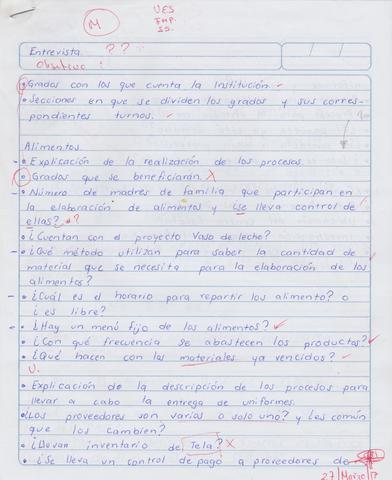 M
UES
FMP.
SS.
Entrevista ? ?
Objetivo :
• Grados con los que cuenta la Institución.
• Secciones en que se dividen los grados y sus corres-
pondientes turnos.
Alimentos.
• Explicación de la realización de los procesos.
• Grados que se beneficiarán. X
• Número de madres de familia que participan en
la elaboración de alimentos y ¿se lleva control de
ellas? ?
• ¿Cuentan con el proyecto Vaso de leche?
- • ¿Qué método utilizan para saber la cantidad de
material que se necesita para la elaboración de los
alimentos?
- • ¿Cuál es el horario para repartir los alimento? o
¿ es libre?
• ¿Hay un menú fijo de los alimentos?
• ¿Con qué frecuencia se abastecen los productos?
• ¿Qué hacen con los materiales ya vencidos?
U.
• Explicación de la descripción de los procesos para
llevar a cabo la entrega de uniformes.
• ¿Los proveedores son varios o solo uno? y ¿es común
que los cambien?
• ¿Llevan inventario de Tela? X
• ¿Se lleva un control de pago a proveedores de
27/Marzo/17